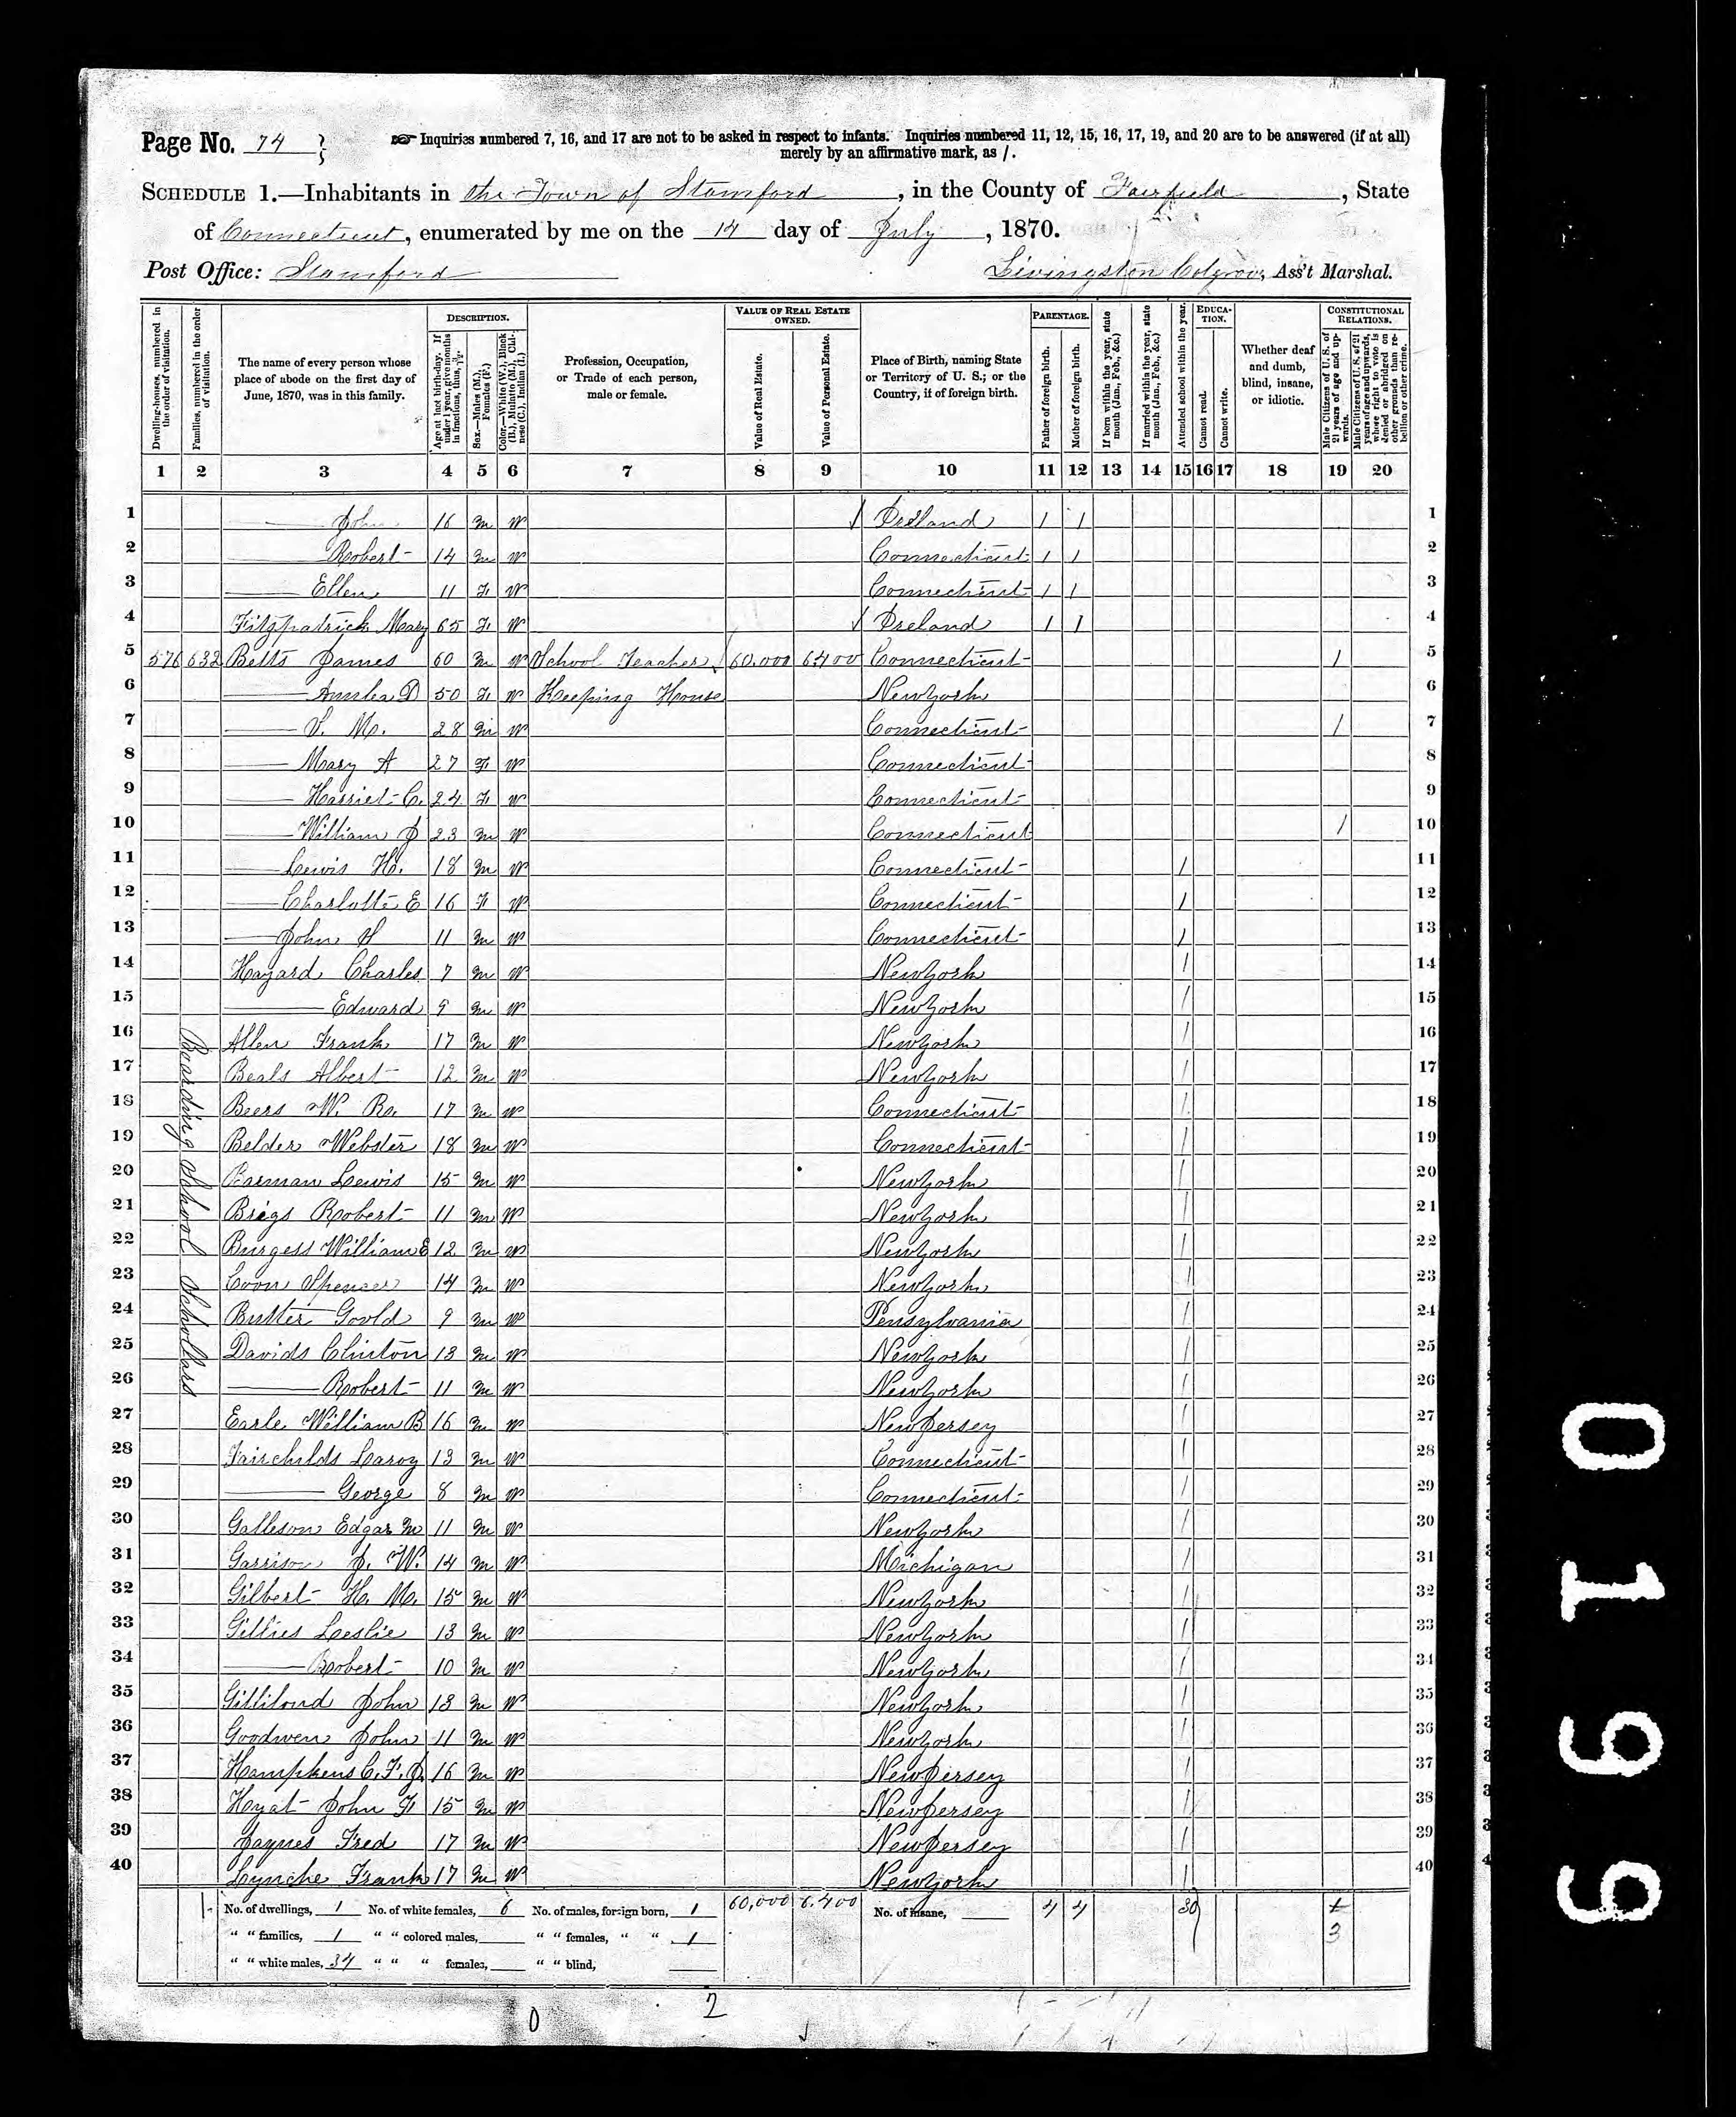 Page No. 74
☞ Inquiries numbered 7, 16, and 17 are not to be asked in respect to infants. Inquiries numbered 11, 12, 15, 16, 17, 19, and 20 are to be answered (if at all)
merely by an affirmative mark, as /.
SCHEDULE 1.—Inhabitants in the Town of Stamford, in the County of Fairfield, State
of Connecticut, enumerated by me on the 14 day of July, 1870.
Post Office: Stamford
Livingston, Ass't Marshal.
Dwelling-houses, numbered in the order of visitation.
Families, numbered in the order of visitation.
The name of every person whose place of abode on the first day of June, 1870, was in this family.
DESCRIPTION.
Age at last birth-day. If under 1 year, give months in fractions, thus,
Sex.—Males (M.), Females (F.)
Color.—White (W.), Black (B.), Mulatto (M.), Chinese (C.), Indian (I.)
Profession, Occupation, or Trade of each person, male or female.
VALUE OF REAL ESTATE OWNED.
Value of Real Estate.
Value of Personal Estate.
Place of Birth, naming State or Territory of U. S.; or the Country, if of foreign birth.
PARENTAGE.
Father of foreign birth.
Mother of foreign birth.
If born within the year, state month (Jan., Feb., &c.)
If married within the year, state month (Jan., Feb., &c.)
Attended school within the year.
EDUCATION.
Cannot read.
Cannot write.
Whether deaf and dumb, blind, insane, or idiotic.
CONSTITUTIONAL RELATIONS.
Male Citizens of U. S. of 21 years of age and upwards.
Male Citizens of U. S. of 21 years of age and upwards, whose right to vote is denied or abridged on other grounds than rebellion or other crime.
1 2 3 4 5 6 7 8 9 10 11 12 13 14 15 16 17 18 19 20
1 — John 16 M W / Ireland / / 1
2 — Robert 14 M W Connecticut / / 2
3 — Ellen 11 F W Connecticut / / 3
4 Fitzpatrick Mary 65 F W / Ireland / / 4
5 576 632 Betts James 60 M W School Teacher 60,000 6400 Connecticut / 5
6 — D 50 F W Keeping House New York 6
7 — M. 28 M W Connecticut / 7
8 — Mary A 27 F W Connecticut 8
9 — Harriet C. 24 F W Connecticut 9
10 — William J 23 M W Connecticut / 10
11 — Lewis H. 18 M W Connecticut / 11
12 — Charlotte E 16 F W Connecticut / 12
13 — John S 11 M W Connecticut / 13
14 Hazard Charles 7 M W New York / 14
15 — Edward 9 M W New York / 15
16 Allen Frank 17 M W New York / 16
17 Beals Albert 12 M W New York / 17
18 Beers W. R. 17 M W Connecticut / 18
19 Belder Webster 18 M W Connecticut / 19
20 Lewis 15 M W New York / 20
21 Brigs Robert 11 M W New York / 21
22 Burgess William E 12 M W New York / 22
23 Coon Spencer 14 M W New York / 23
24 Butter Goold 9 M W Pensylvania / 24
25 Davids Clinton 13 M W New York / 25
26 — Robert 11 M W New York / 26
27 Earle William B 16 M W New Jersey / 27
28 Fairchilds Laroy 13 M W Connecticut / 28
29 — George 8 M W Connecticut / 29
30 Galleson Edgar M 11 M W New York / 30
31 Garrison J. W. 14 M W Michigan / 31
32 Gilbert H. M. 15 M W New York / 32
33 Gillies Leslie 13 M W New York / 33
34 — Robert 10 M W New York / 34
35 Gillilond John 13 M W New York / 35
36 Goodwen John 11 M W New York / 36
37 Hamphens C. F. J. 16 M W New Jersey / 37
38 Hyat John F 15 M W New Jersey / 38
39 Jaynes Fred 17 M W New Jersey / 39
40 Lynche Frank 17 M W New York / 40
Boarding School Schollars
No. of dwellings, 1 No. of white females, 6 No. of males, foreign born, 1 60,000 6.400 No. of insane, 4 4 30
" " families, 1 " " colored males, " " females, " " 1 3
" " white males, 34 " " " females, " " blind,
0 2
0199